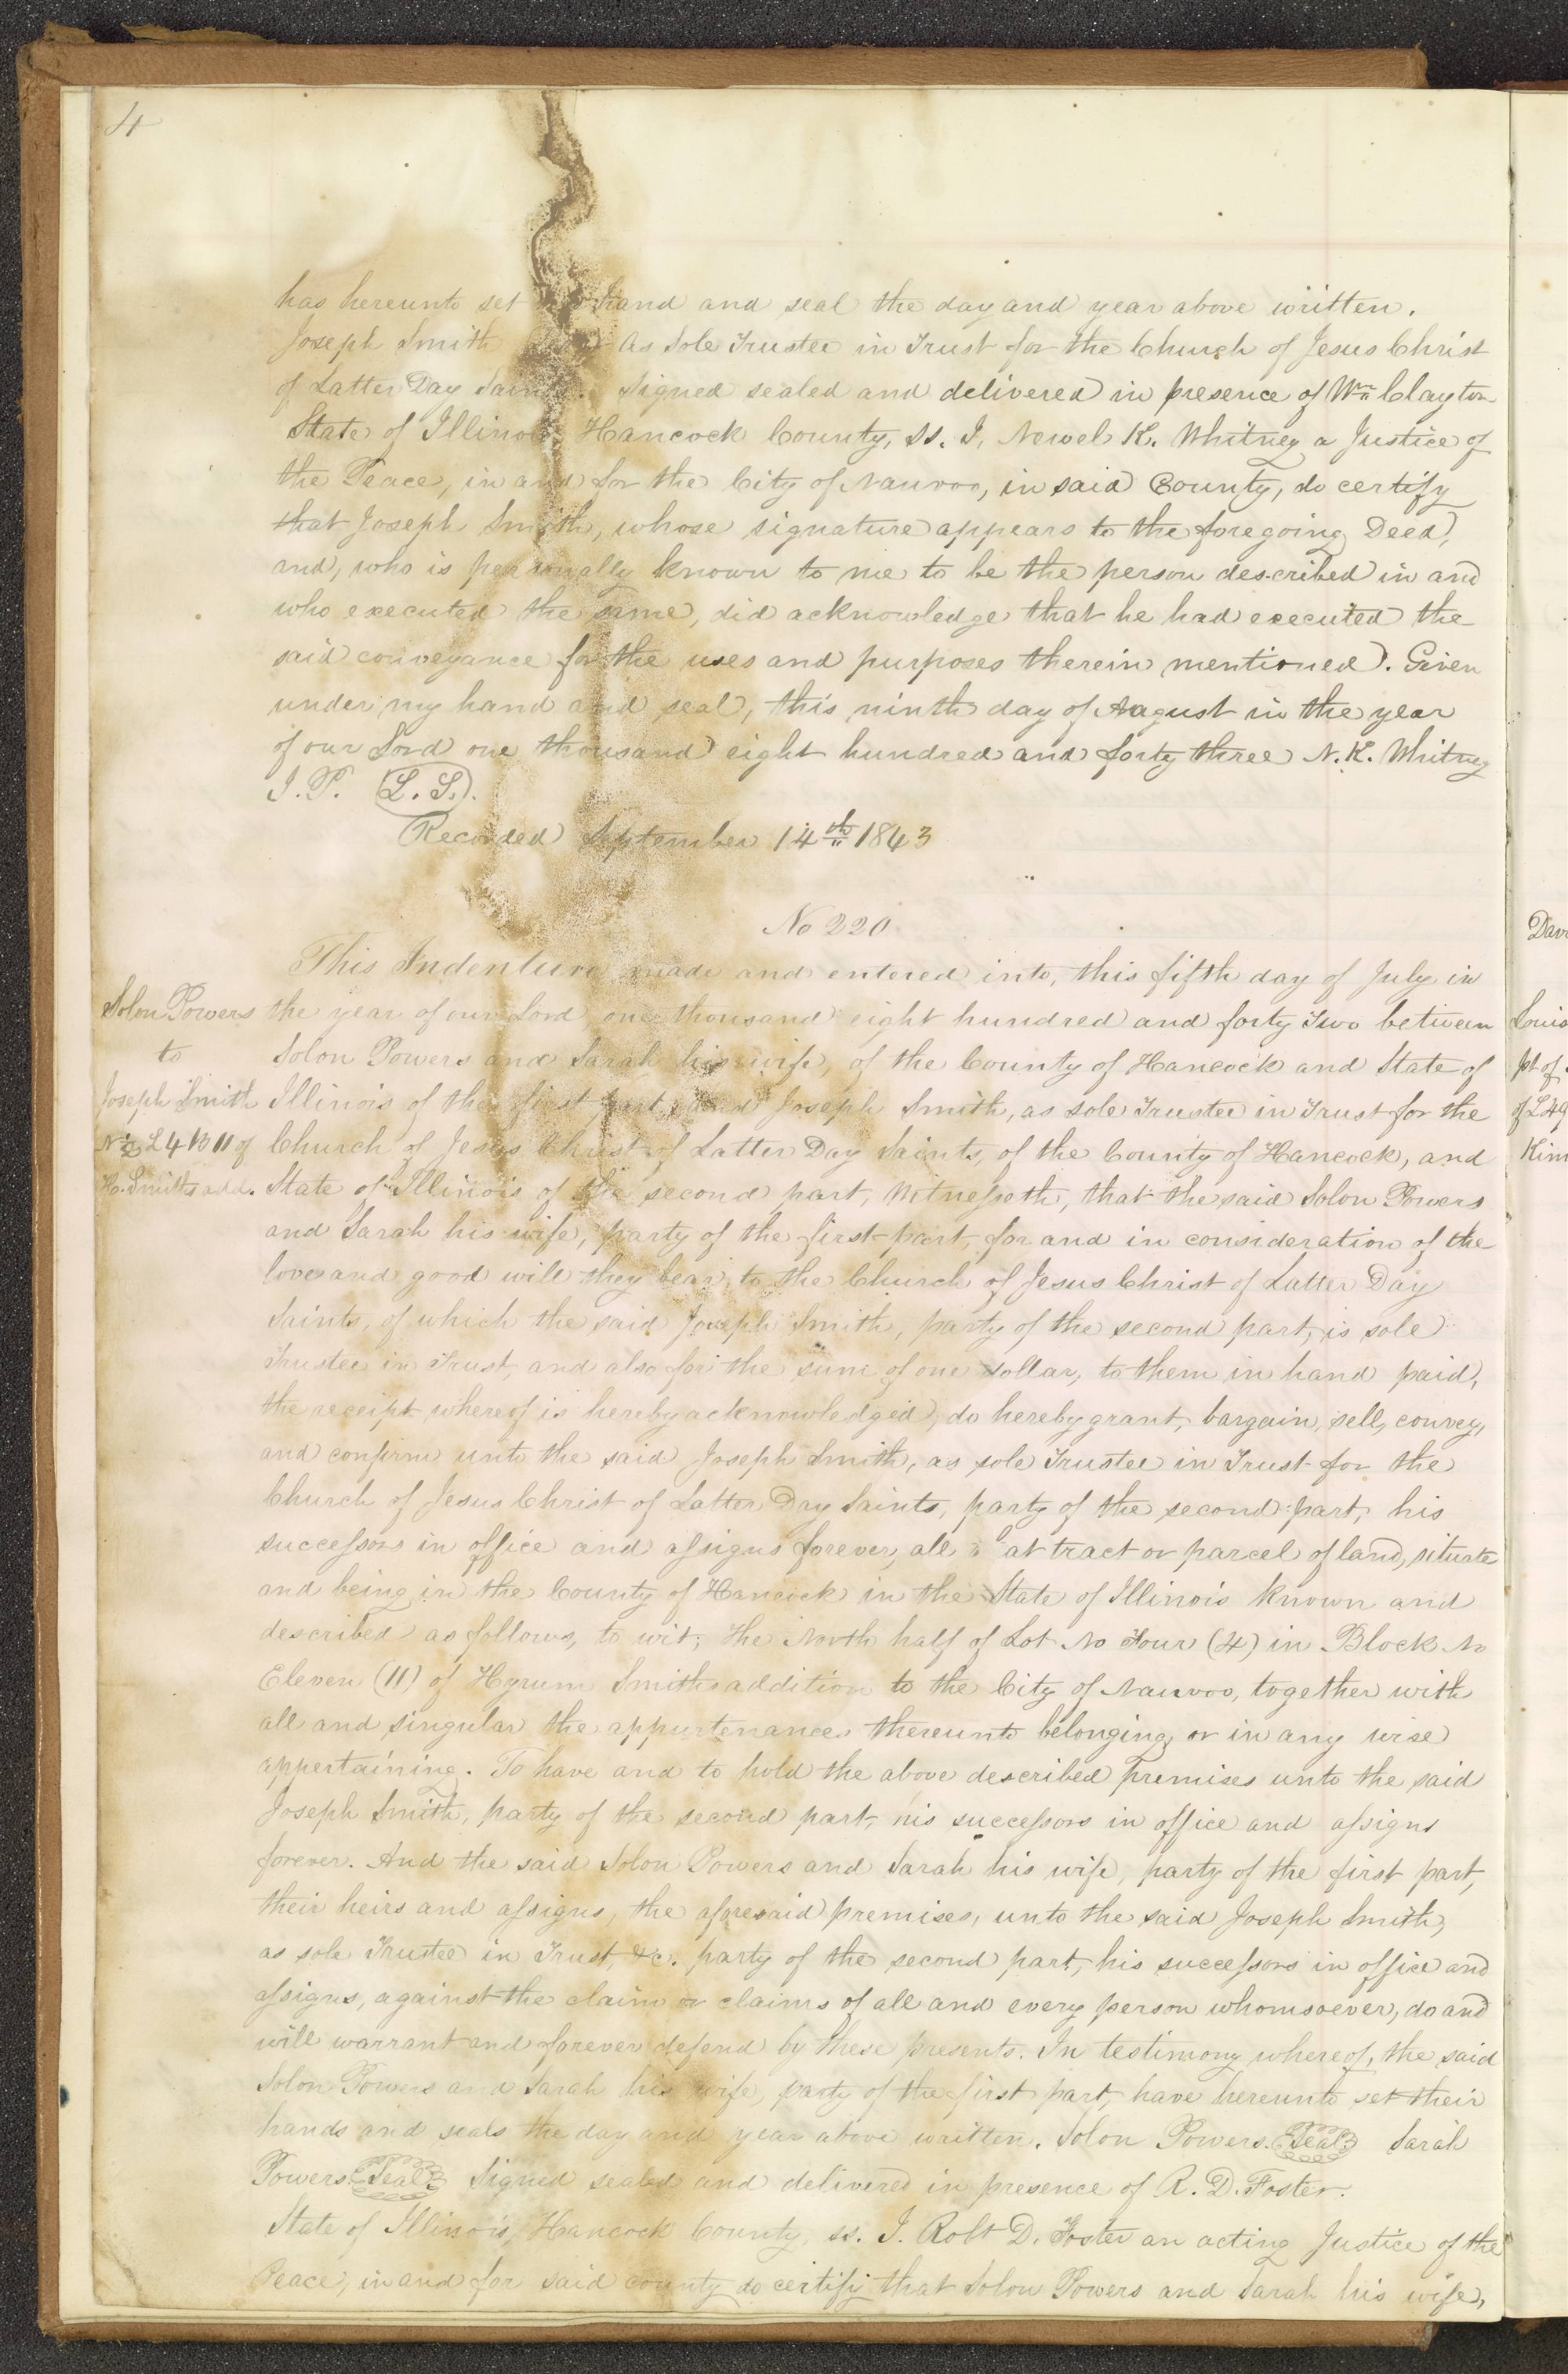 4
has hereunto set hand and seal the day and year above written.
Joseph Smith As Sole Trustee in Trust for the Church of Jesus Christ
of Latter Day Saints. Signed sealed and delivered in presence of Wm Clayton
State of Illinois, Hancock County, ss. I, Newel K. Whitney a Justice of
the Peace, in and for the City of Nauvoo, in said County, do certify
that Joseph Smith, whose signature appears to the foregoing Deed,
and, who is personally known to me to be the person described in and
who executed the same, did acknowledge that he had executed the
said conveyance for the uses and purposes therein mentioned. Given
under my hand and seal, this ninth day of August in the year
of our Lord one thousand eight hundred and forty three N. K. Whitney
J. P. (L. S.).
Recorded September 14th 1843
No 220
This Indenture made and entered into, this fifth day of July in
the year of our Lord one thousand eight hundred and forty Two between
Solon Powers and Sarah his wife, of the County of Hancock and State of
Illinois of the first part, and Joseph Smith, as sole Trustee in Trust for the
Church of Jesus Christ of Latter Day Saints, of the County of Hancock, and
State of Illinois of the second part, Witnesseth, that the said Solon Powers
and Sarah his wife, party of the first part, for and in consideration of the
love and good will they bear, to the Church of Jesus Christ of Latter Day
Saints, of which the said Joseph Smith, party of the second part, is sole
Trustee in Trust, and also for the sum of one dollar, to them in hand paid,
the receipt whereof is hereby acknowledged, do hereby grant, bargain, sell, convey,
and confirm unto the said Joseph Smith, as sole Trustee in Trust for the
Church of Jesus Christ of Latter Day Saints, party of the second part, his
successors in office and assigns forever, all that tract or parcel of land, situate
and being in the County of Hancock in the State of Illinois known and
described as follows, to wit; The North half of Lot No Four (4) in Block No
Eleven (11) of Hyrum Smiths addition to the City of Nauvoo, together with
all and singular the appurtenances thereunto belonging, or in any wise
appertaining. To have and to hold the above described premises unto the said
Joseph Smith, party of the second part, his successors in office and assigns
forever. And the said Solon Powers and Sarah his wife, party of the first part,
their heirs and assigns, the aforesaid premises, unto the said Joseph Smith,
as sole Trustee in Trust, &c. party of the second part, his successors in office and
assigns, against the claim or claims of all and every person whomsoever, do and
will warrant and forever defend by these presents. In testimony whereof, the said
Solon Powers and Sarah his wife, party of the first part, have hereunto set their
hands and seals the day and year above written. Solon Powers. Seal Sarah
Powers. Seal Signed sealed and delivered in presence of R. D. Foster.
State of Illinois, Hancock County ss. I. Robt D. Foster an acting Justice of the
Peace, in and for said county do certify that Solon Powers and Sarah his wife,
Solon Powers
to
Joseph Smith
N ½ L 4 B 11 of
H. Smiths add.
pt of
of L 49